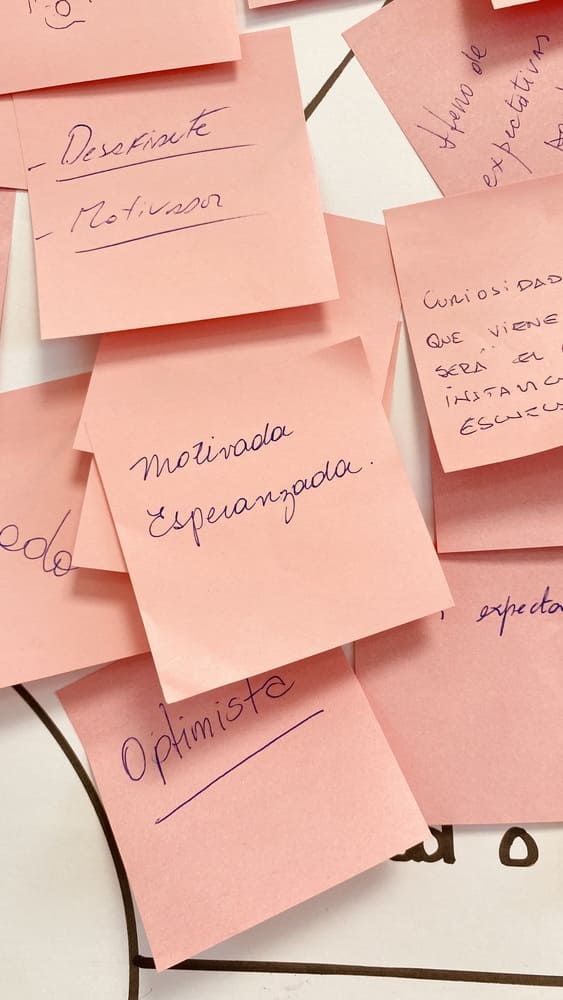 - Desafiante
- Motivador
de
expectativas
CURIOSIDAD
QUE VIENE
SERÁ EL
Motivada
Esperanzada.
edo
expecta
Optimista
o